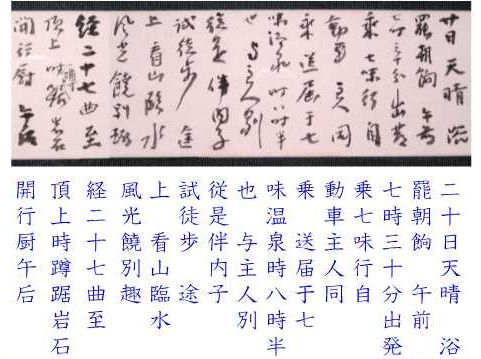 廿日天晴 浴
罷朝餉 午前
七時三十分出発
乗七味行自
動車 主人同
乗 送届于七
味温泉 时八時半
也 与主人別
從是伴内子
試徒歩 途
上 看山臨水
風光饒別趣
経二十七曲至
頂上 時蹲踞岩石
開行厨 午后
二十日天晴 浴
罷朝餉 午前
七時三十分出発
乗七味行自
動車主人同
乗 送届于七
味温泉時八時半
也 与主人別
従是伴内子
試徒歩 途
上 看山臨水
風光饒別趣
経二十七曲至
頂上時蹲踞岩石
開行厨午后